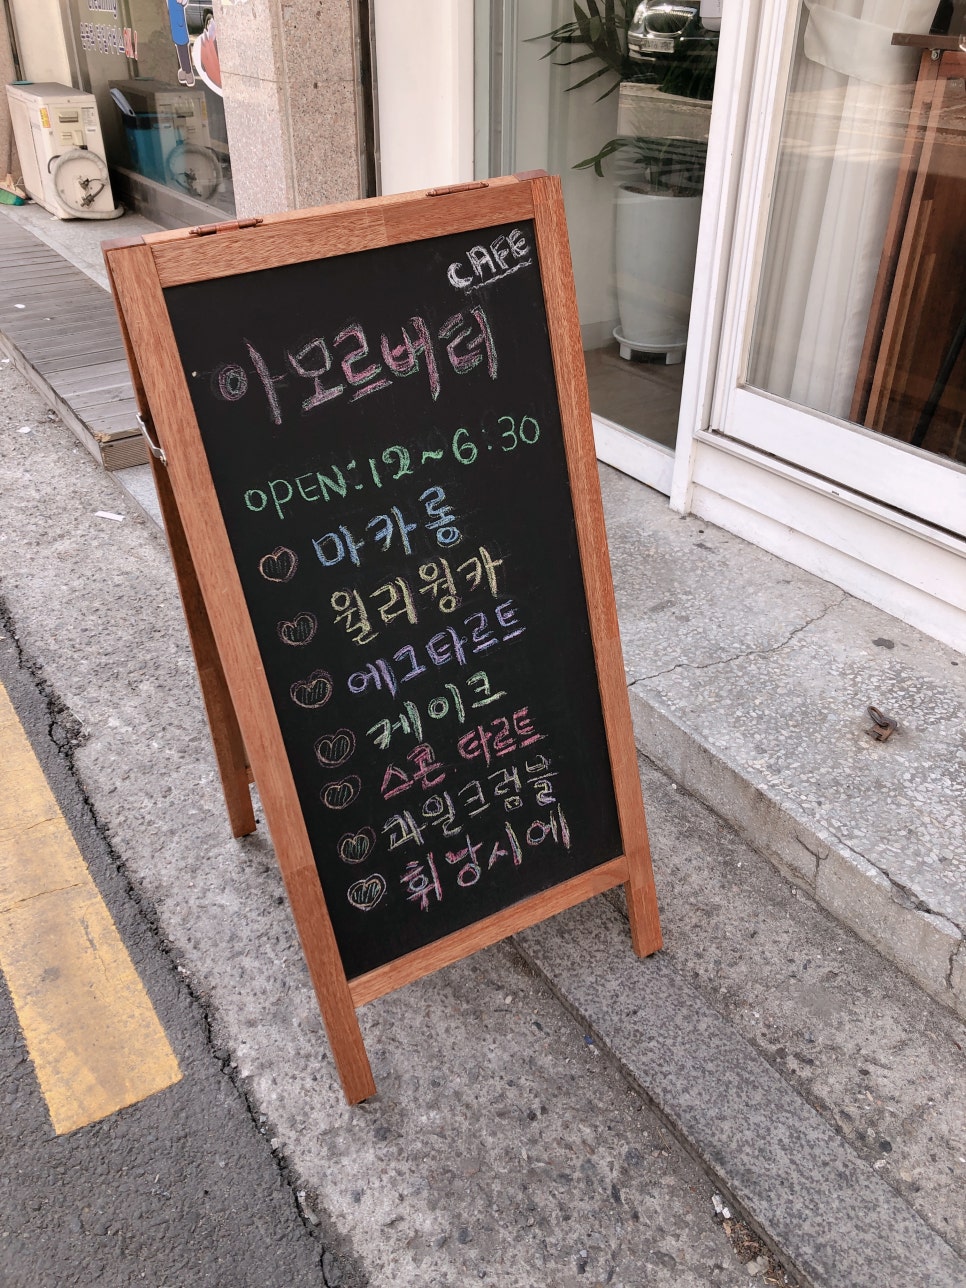 CAFE
아모르버터
OPEN:12~6:30
마카롱
월리웡카
에그타르트
케이크
스콘 타르트
과일크럼블
휘낭시에